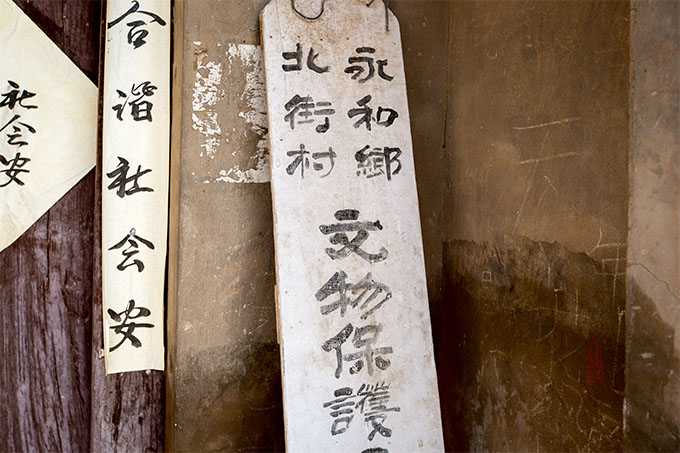 永和鄉
北街村
文物保護
合谐社会安
社会安